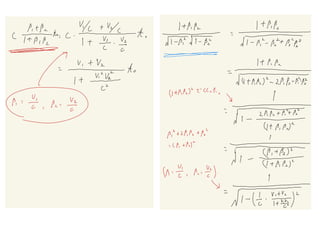 c (β₁+β₂)/(1+β₁β₂) t₀ = c · (V₁/c + V₂/c)/(1 + V₁/c · V₂/c) t₀
= (V₁ + V₂)/(1 + V₁V₂/c²) t₀
β₁ = V₁/c , β₂ = V₂/c
(1+β₁β₂)/(√(1-β₁²) √(1-β₂²)) = (1+β₁β₂)/√(1-β₁²-β₂²+β₁²β₂²)
= (1+β₁β₂)/√((1+β₁β₂)²-2β₁β₂-β₁²-β₂²)
= 1/√(1 - (2β₁β₂+β₁²+β₂²)/(1+β₁β₂)²)
β₁²+2β₁β₂+β₂²
=(β₁+β₂)²
= 1/√(1 - (β₁+β₂)²/(1+β₁β₂)²)
(β₁ = V₁/c , β₂ = V₂/c)